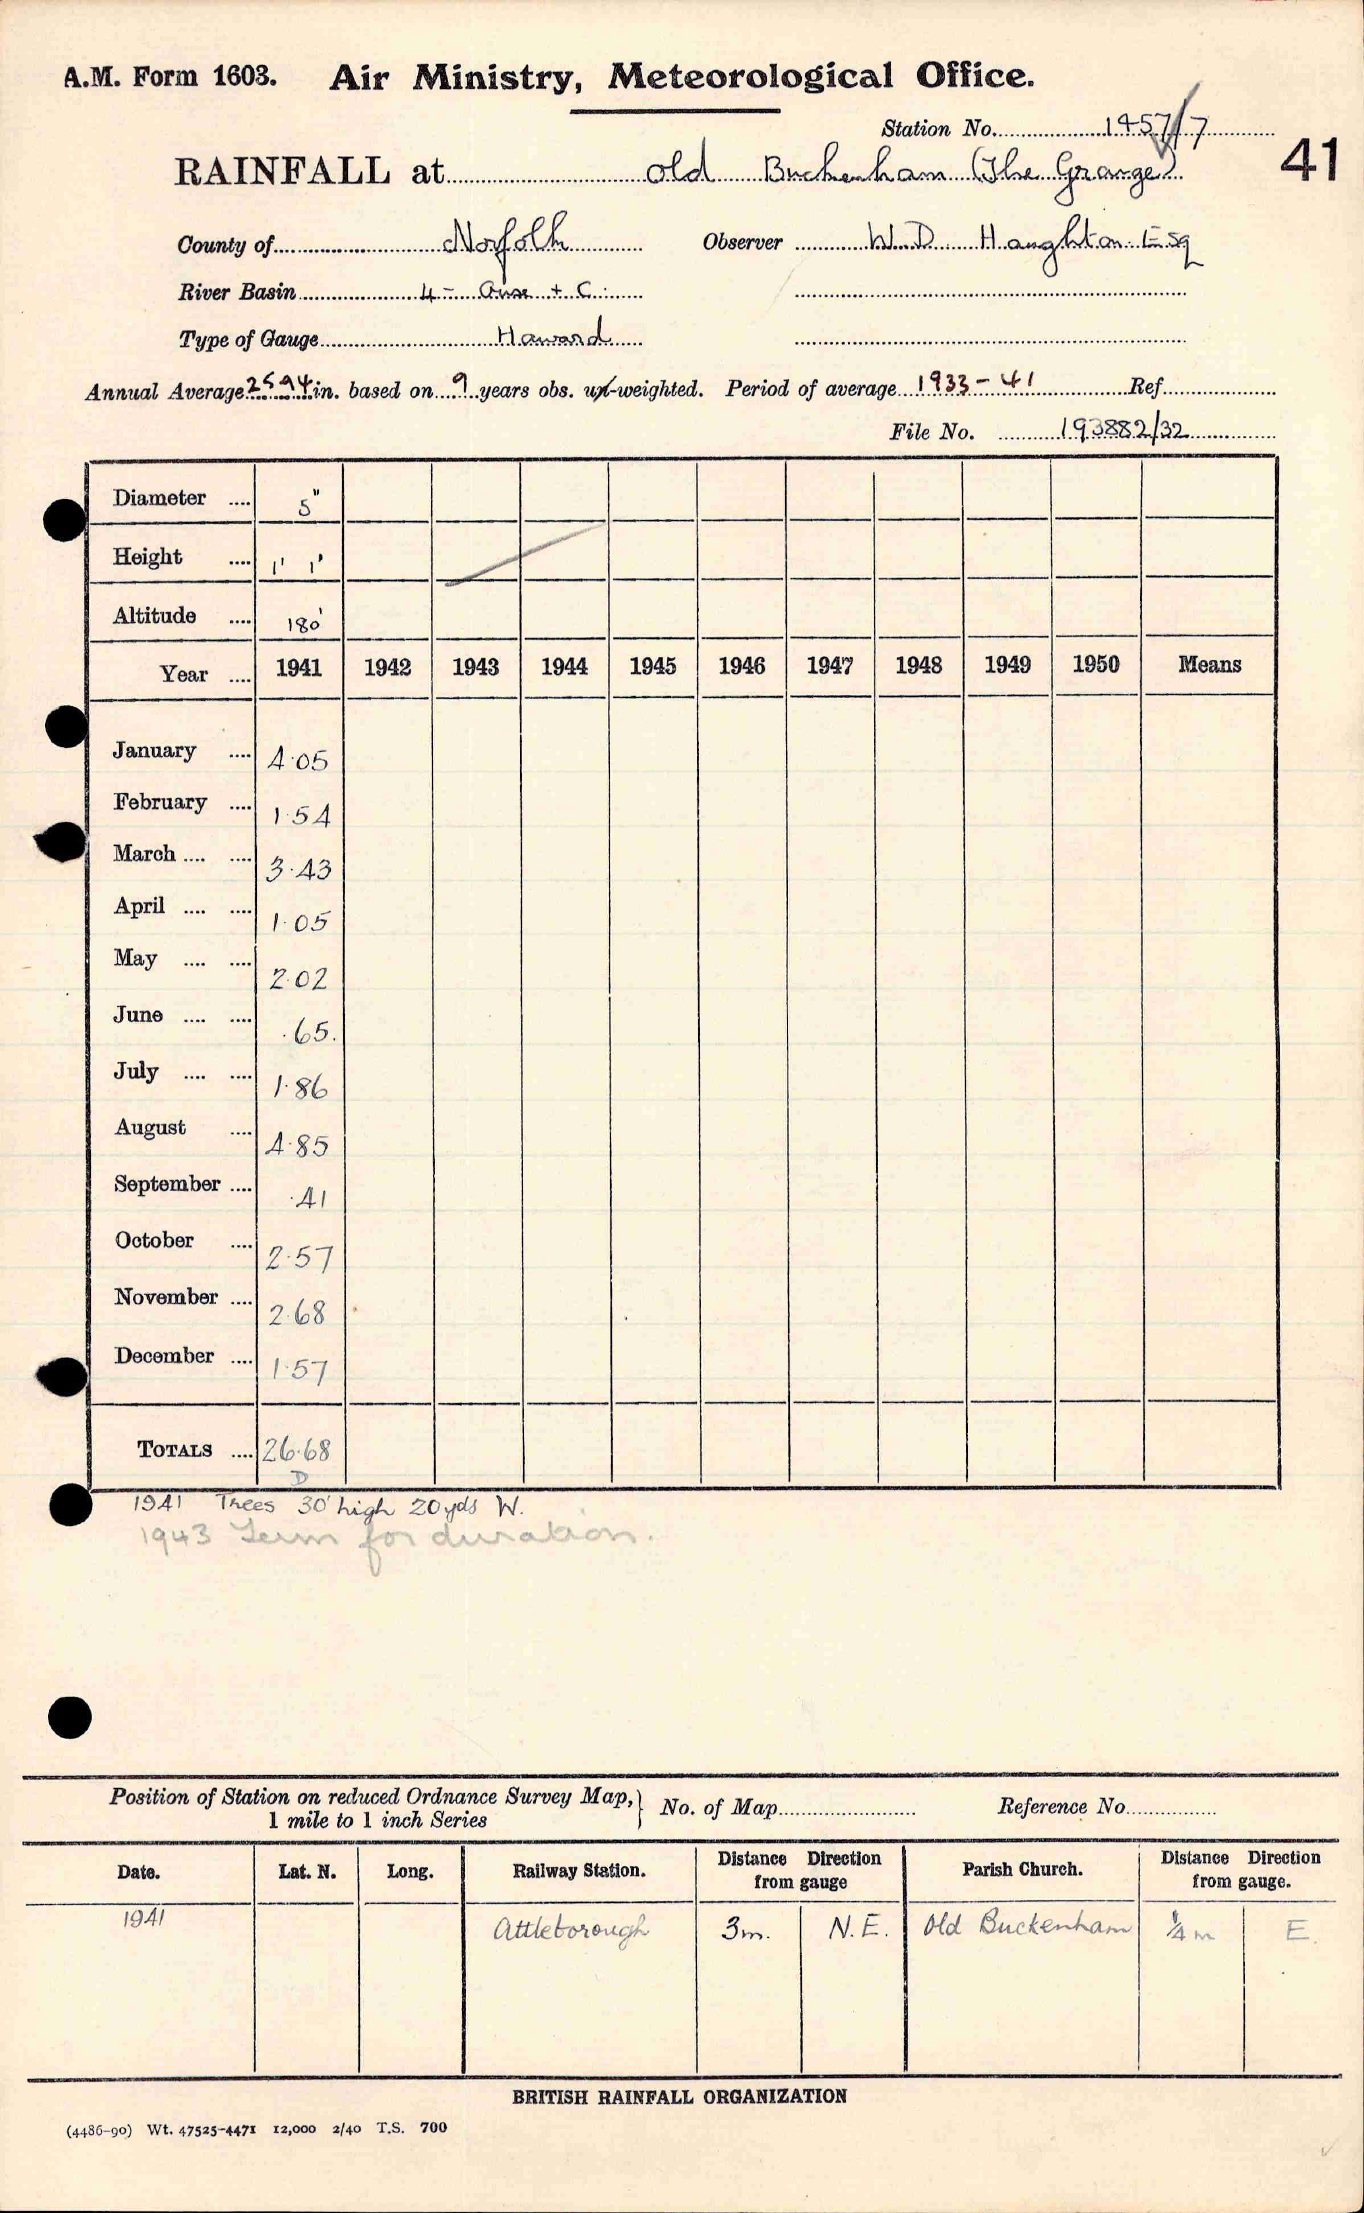 A.M. Form 1603. Air Ministry, Meteorological Office.
Station No. 1457/7
41
RAINFALL at Old Buckenham (The Grange)
County of Norfolk Observer W.D. Haughton Esq
River Basin 4 - Ouse + C.
Type of Gauge Howard
Annual Average 25.94 in. based on 9 years obs. un-weighted. Period of average 1933-41 Ref.
File No. 193882/32
Diameter .... 5"
Height .... 1' 1'
Altitude .... 180'
Year .... 1941 1942 1943 1944 1945 1946 1947 1948 1949 1950 Means
January .... 4.05
February .... 1.54
March .... .... 3.43
April .... .... 1.05
May .... .... 2.02
June .... .... .65.
July .... .... 1.86
August .... 4.85
September .... .41
October .... 2.57
November .... 2.68
December .... 1.57
TOTALS .... 26.68
D
1941 Trees 30' high 20yds W.
1943 Term for duration.
Position of Station on reduced Ordnance Survey Map, 1 mile to 1 inch Series } No. of Map Reference No.
Date. Lat. N. Long. Railway Station. Distance Direction from gauge Parish Church. Distance Direction from gauge.
1941 Attleborough 3m. N.E. Old Buckenham 1/4 m E.
BRITISH RAINFALL ORGANIZATION
(4486-90) Wt. 47525-4471 12,000 2/40 T.S. 700